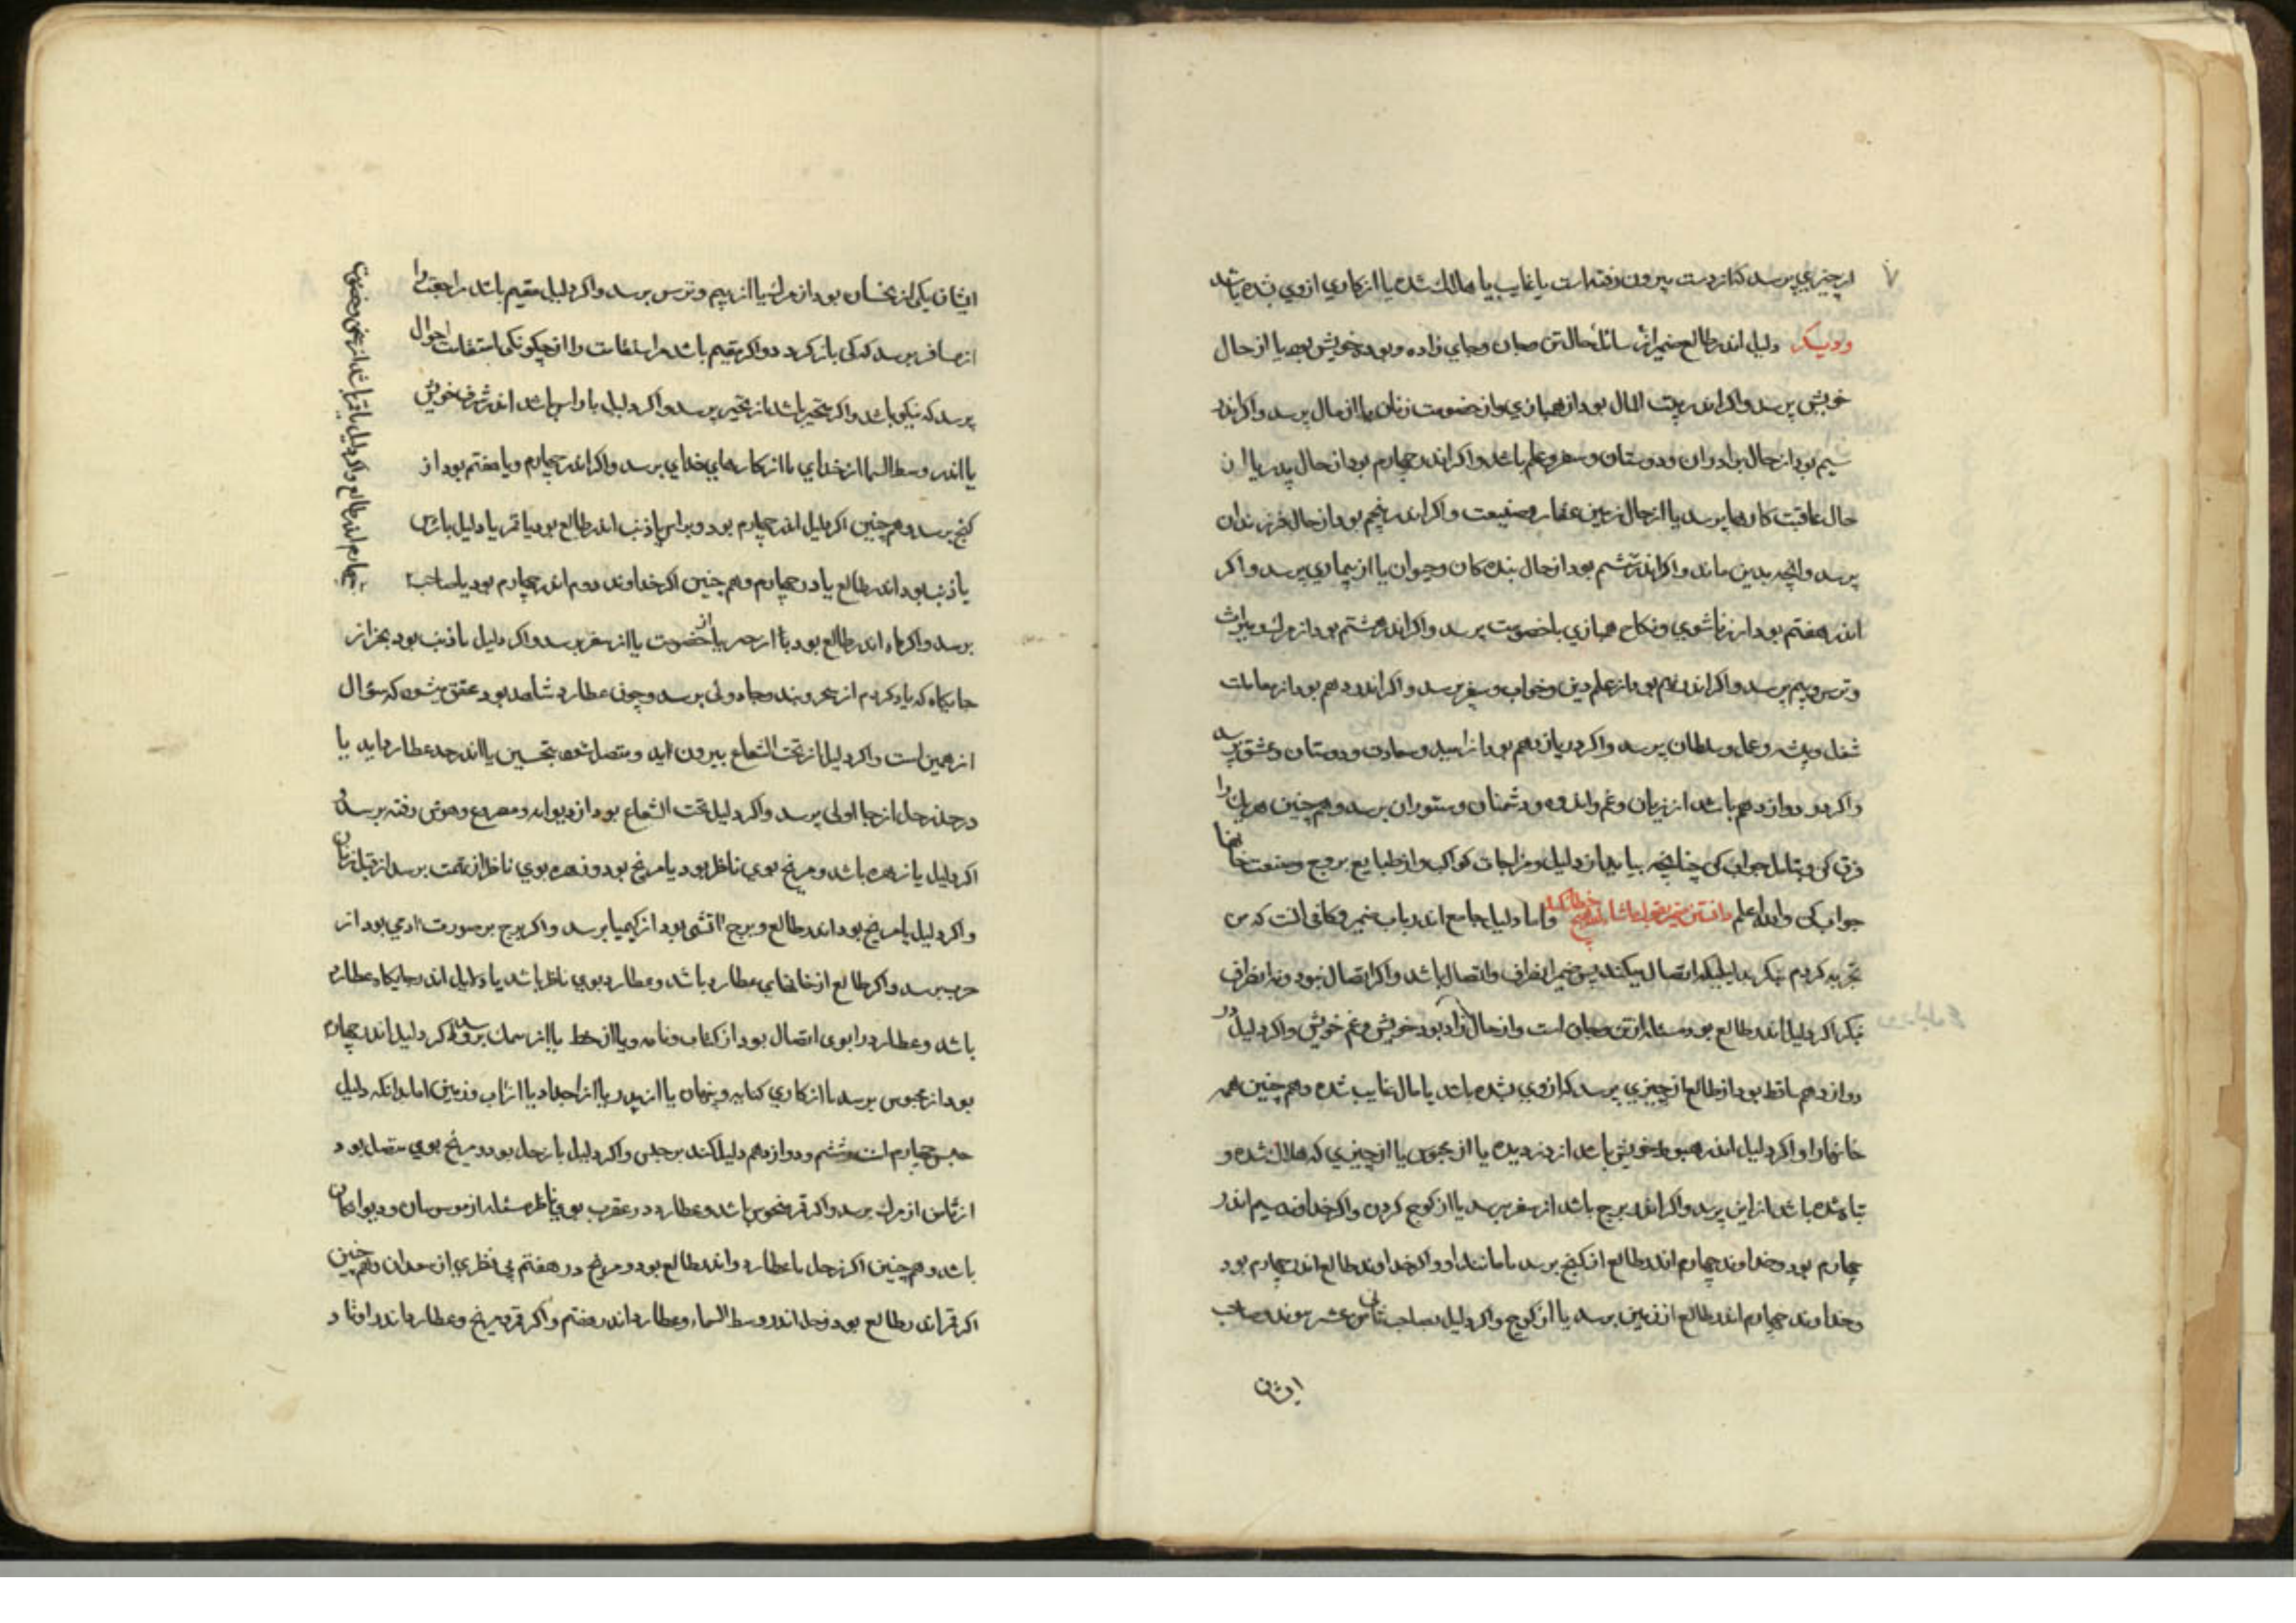 ۷
از چیزی پرسد کز دست بیرون رفته است یا غایب یا هالک شده یا از کاری از وی شده باشد
ودیکر دلیل اندر طالع ضمیر از سائل حال تن و جان و جای زاده و بوده خویش بود یا از حال
خویش پرسد واکر اندر بیت المال بود از همبازی و از خصومت زنان یا از مال پرسد واکر اندر
سیم بود از حال برادران ودوستان وسفر وعلم باشد واکر اندر چهارم بود از حال پدر یا از
حال عاقبت کارها پرسد یا از حال زمین عقار وضیعت واکر اندر پنجم بود از حال فرزندان
پرسد وانچه بدین ماند واکر اندر ششم بود از حال بندکان وحیوان یا از بیماری پرسد واکر
اندر هفتم بود از زناشوی ونکاح همبازی یا خصومت پرسد واکر اندر هشتم بود از مرک ومیراث
وترس وبیم پرسد واکر اندر نهم بود از علم دین وخواب وسفر پرسد واکر اندر دهم بود از
شغل وپیشه وعمل وسلطان پرسد واکر در یازدهم بود از امید وسعادت ودوستان وعشق پرسد
واکر در دوازدهم باشد از زیان وغم واندوه ودشمنان وستوران پرسد وهم چنین هر یک را
فرق کن وتامل جواب کن چنانچه بیاید از دلیل ومزاجات کواکب واز طبایع بروج وصفت خانها
جواب کن والله اعلم دانستن ضمیر بقول واما دلیل جامع اندر باب ضمیر وکافی انست که من
تجربه کردم بنکر تا بکه اتصال میکند پس ضمیر انصراف واتصال باشد واکر اتصال نبود ونه انصراف
بنکر اکر دلیل اندر طالع بود مسئله از تن وجان است واز حال زاد بود خویش وغم خویش واکر دلیل در
دوازدهم ساقط بود از طالع از چیزی پرسد کز وی بشده باشد یا مال غایب شده وهم چنین همه
خانها را واکر دلیل اندر هبوط خویش باشد از دزدیده یا از محبوس یا از چیزی که هلاک شده و
تباه شده باشد از این پرسد واکر اندر برج باشد از سفر پرسد یا از کوچ کردن واکر خداوند سیم اندر
چهارم بود وخداوند چهارم اندر طالع از کنج پرسد یا مانند او واکر خداوند طالع اندر چهارم بود
وخداوند چهارم اندر طالع از زمین پرسد یا از کوچ واکر دلیل بصاحب ثانی عشر پیوندد صاحب
ایشان
ایشان یکی از نحسان بود از مرک یا از بیم وترس پرسد واکر دلیل مقیم باشد مراجعت را
از مسافر پرسد که کی باز کردد واکر مقیم باشد مر استقامت را از چکونکی استقامت احوال
پرسد که نیکو باشد واکر متحیر باشد از متحیر پرسد واکر دلیل با راس باشد اندر شرف خویش
یا اندر وسط السما از خدای یا از کارهای خدای پرسد واکر اندر چهارم ویا هفتم بود از
کنج پرسد وهم چنین اکر دلیل اندر چهارم بود وبراس یا ذنب اندر طالع بود یا قمر یا دلیل باراس
یا ذنب بود اندر طالع یا در چهارم وهم چنین اکر خداوند دوم اندر چهارم بود یا صاحب
چهارم اندر طالع واکر دلیل با قمر باشد از
پرسد واکر ماه اندر طالع بود یا از حرب یا از خصومت یا از سفر پرسد واکر دلیل با ذنب بود بجز از
جایکاه که یاد کردم از سحر وبند وجادوئی پرسد وچون عطارد شاهد بود محقق شود که سؤال
از همین است واکر دلیل از تحت الشعاع بیرون اید ومتصل شود بنحسین یا اندر حد عطارد اید یا
در حد زحل از جادوئی پرسد واکر دلیل تحت الشعاع بود از دیوانه ومصروع وهوش رفته پرسد و
اکر دلیل با زهره باشد ومریخ بوی ناظر بود یا مریخ بود وزهره بوی ناظر از تهمت پرسد از قبل زنان
واکر دلیل با مریخ بود اندر طالع وبرج آتشی بود از کیمیا پرسد واکر برج بر صورت ادمی بود از
حرب پرسد واکر طالع از خانهای عطارد باشد وعطارد بوی ناظر باشد یا دلیل اندر جایکاه عطارد
باشد وعطارد را بوی اتصال بود از کتاب ونامه ویا از خط یا از پرسد واکر دلیل اندر چهارم
بود از محبوس پرسد یا از کاری کنایه وپنهان یا از پدر یا از اجداد یا از آب وزمین اما بدانکه دلیل
حبس چهارم است وششم ودوازدهم دلیل کند بر حبس واکر دلیل با زحل بود ومریخ بوی متصل بود
از مرک پرسد واکر قمر منحوس باشد وعطارد در عقرب بوی ناظر مسئله از ودیوانکان
باشد وهم چنین اکر زحل با عطارد اندر طالع بود ومریخ در هفتم بی نظری از سعدان وهم چنین
اکر قمر اندر طالع بود وزحل اندر وسط السماء وعطارد اندر هفتم واکر قمر ومریخ وعطارد اندر اوتاد